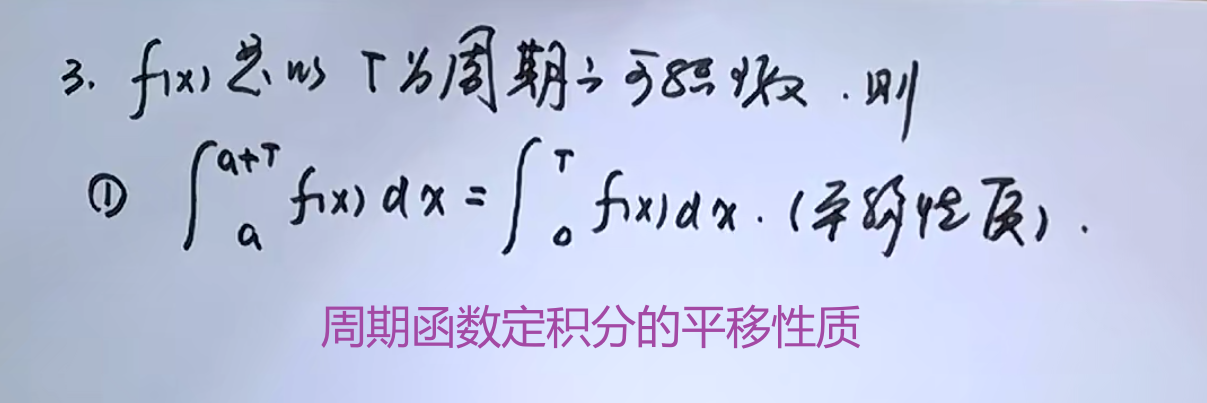 3. f(x)是以T为周期之可积函数.则
① ∫_a^{a+T} f(x)dx = ∫_0^T f(x)dx.(平移性质).
周期函数定积分的平移性质